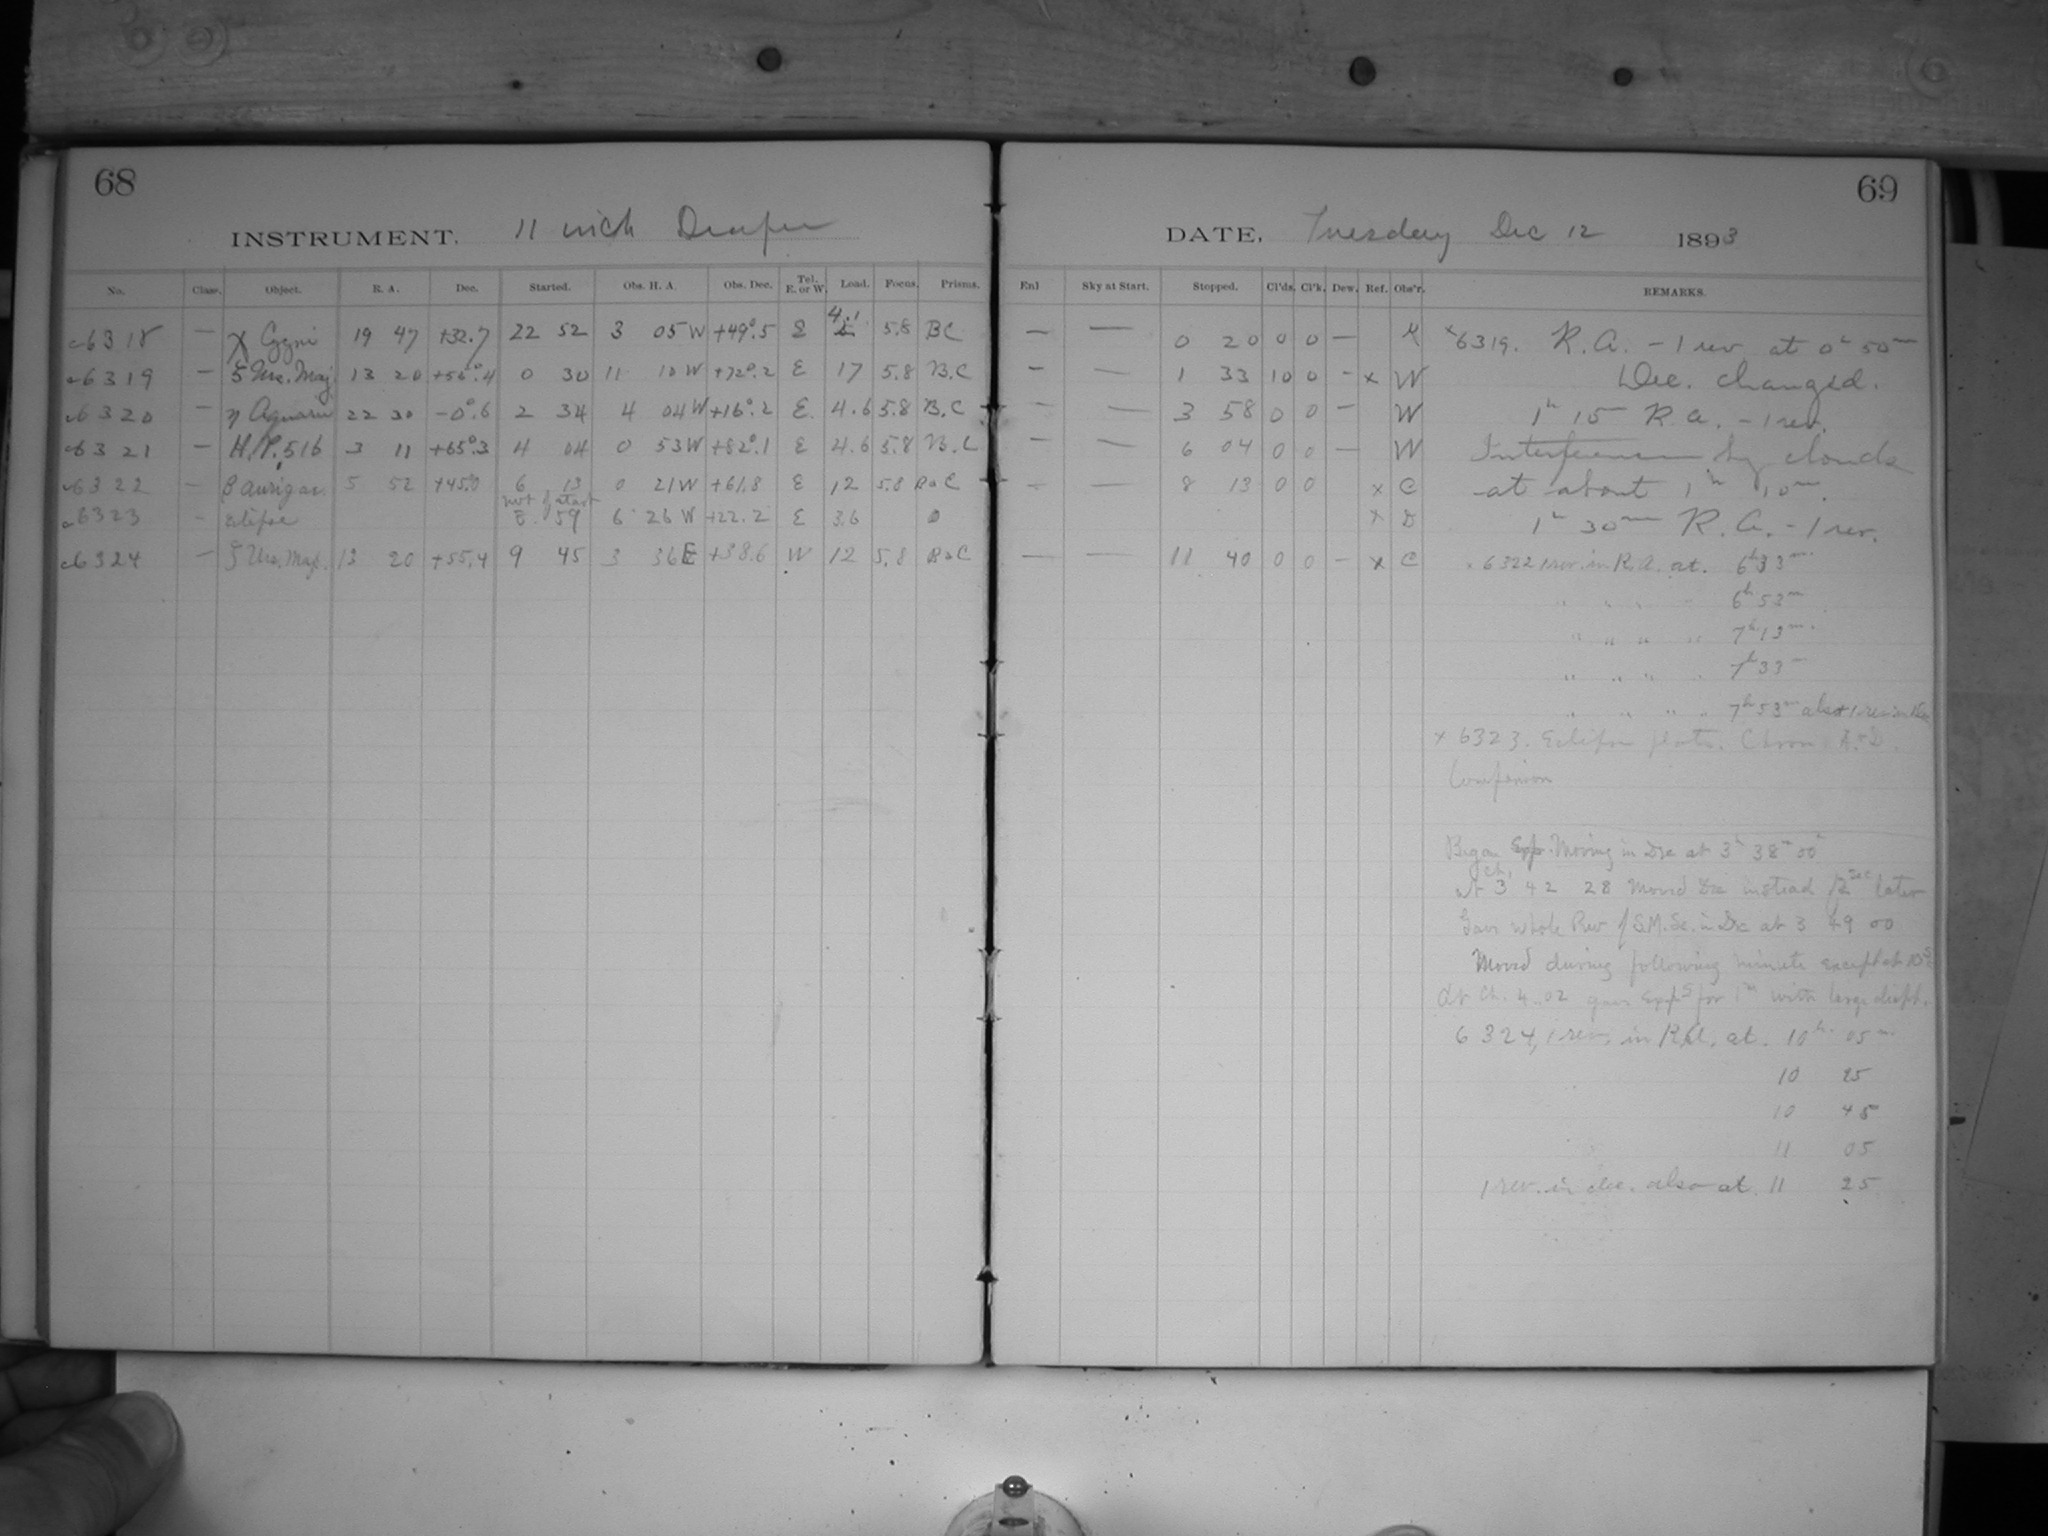 68
INSTRUMENT. 11 inch Draper
No. Class. Object. R. A. Dec. Started. Obs. H. A. Obs. Dec. Tel. E. or W. Load. Focus. Prisms.
c6318 — χ Cygni 19 47 +32.7 22 52 3 05 W +49°.5 E 4.1 5.8 BC
c6319 — ζ Urs. Maj. 13 20 +55°.4 0 30 11 10 W +72°.2 E 17 5.8 B.C
c6320 — η Aquarii 22 30 -0°.6 2 34 4 04 W +16°.2 E. 4.6 5.8 B.C
c6321 — H.P. 516 3 11 +65°.3 4 04 0 53 W +82°.1 E 4.6 5.8 B.C
c6322 — β Aurigae 5 52 +45.0 6 13 0 21 W +61.8 E 12 5.8 B&C
c6323 - Eclipse 59 6 26 W +22.2 E 3.6 0
c6324 — ζ Urs. Maj. 13 20 +55.4 9 45 3 36 E +38.6 W 12 5.8 B&C
69
DATE, Tuesday Dec 12 1893
Enl Sky at Start. Stopped. Cl'ds. Cl'k. Dew. Ref. Obs'r. REMARKS.
— — 0 20 0 0 —
— — 1 33 10 0 - x W
— — 3 58 0 0 — W
— — 6 04 0 0 — W
- — 8 13 0 0 x C
x D
— — 11 40 0 0 — x C
x6319. R.A. - 1 rev at 0h 50m
Dec. changed.
1h 15 R.A. - 1 rev.
Interference by clouds
at about 1h 10m.
1h 30m R.A. - 1 rev.
x 6322 1 rev. in R.A. at. 6h 33m
" " " " 6h 53m
" " " " 7h 13m.
" " " " 7h 33m
" " " " 7h 53m also 1 rev in Dec
x 6323. Eclipse plate. Chron.
Companion
Began Exp. Moving in Dec at 3h 38m 00s
At ch. 3 42 28 Moved Dec instead later
Gave whole Rev of S.M. Sc. in Dec at 3 49 00
Moved during following minute except at
At Ch. 4..02 gave Exps for 1m with large diaph.
6324, 1 rev. in R.A. at. 10h. 05m.
10 25
10 45
11 05
1 rev. in dec. also at 11 25